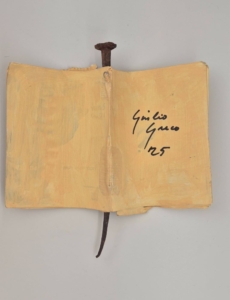 Giulio
Greco
'25